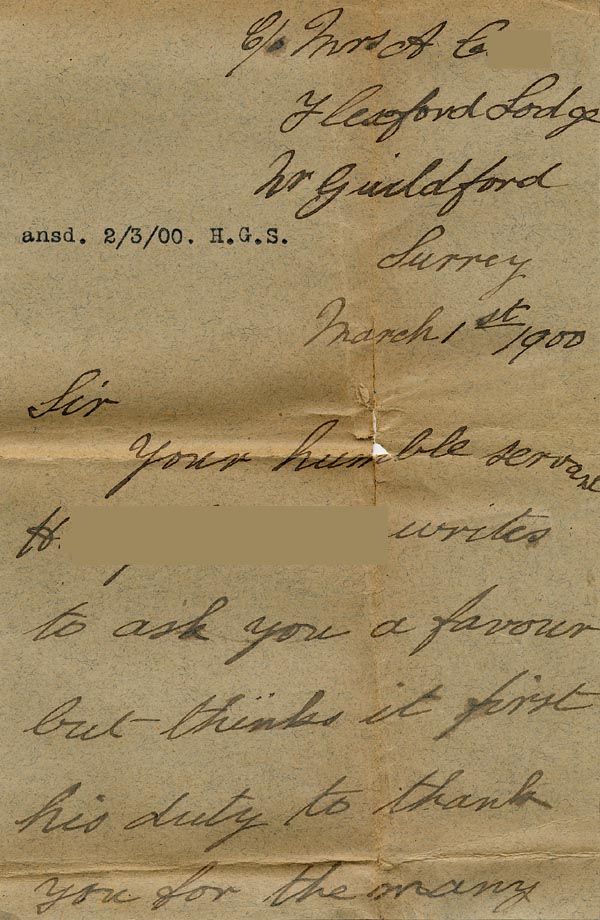 C/o Mrs A E
Flexford Lodge
Nr Guildford
ansd. 2/3/00. H.G.S.
Surrey
March 1st 1900
Sir
Your humble servant
H. writes
to ask you a favour
but thinks it first
his duty to thank
you for the many